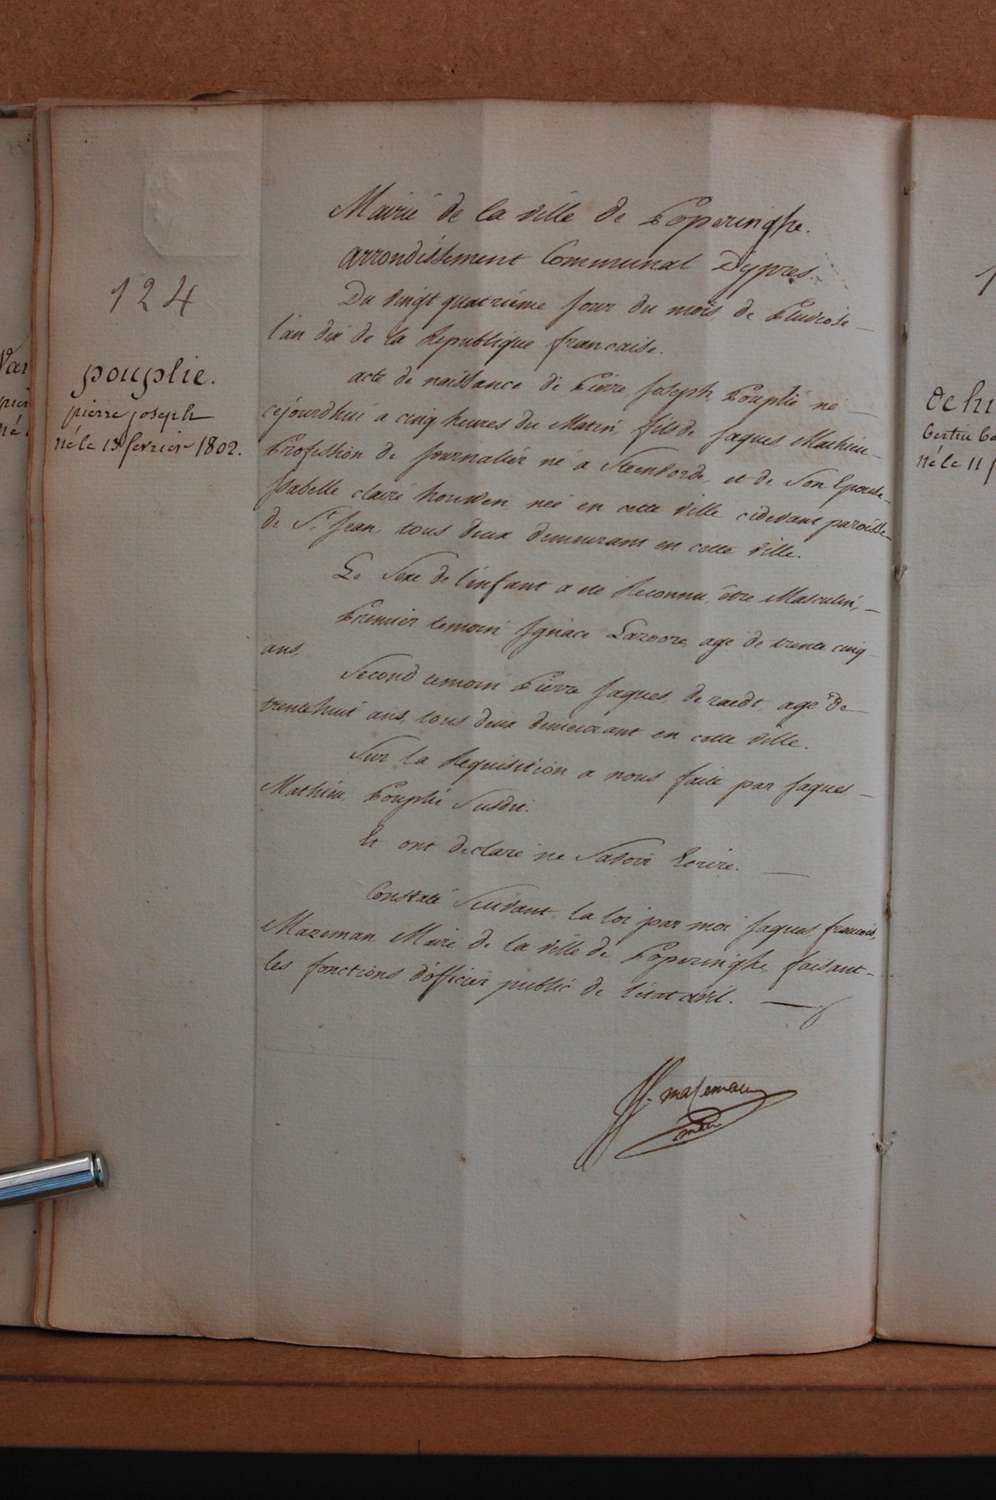 124
pouplie.
pierre joseph
né le 13 fevrier 1802.
Mairie de la ville de Poperinghe.
Arrondissement Communal Dypres.
Du vingt quatrieme jour du mois de Pluviose
l'an dix de la Republique francaise.
acte de naissance de Pierre Joseph Pouplié né
cejourdhui a cinq heures du Matin fils de Jaques Mathieu
Profession de Journalier né a Steenvorde, et de Son Epouse
Isabelle claire houwen née en cette Ville cidevant paroisse
de St. Jean, tous deux demeurant en cette ville.
Le Sexe de l'enfant a été Reconnu être Masculin,
Premier temoin Ignace agé de trente cinq
ans.
Second temoin Pierre Jaques de raedt agé de
trentehuit ans, tous deux demeurant en cette ville.
Sur la Requisition a nous faite par Jaques
Mathieu Pouplié Susdit.
Et ont declaré ne Savoir Ecrire.
Constaté Suivant la loi par moi Jaques francois
Mazeman Maire de la ville de Poperinghe, faisant
les fonctions d'officier public de l'etat civil.
JF. mazeman
Var
né
ochi
né le 11 f